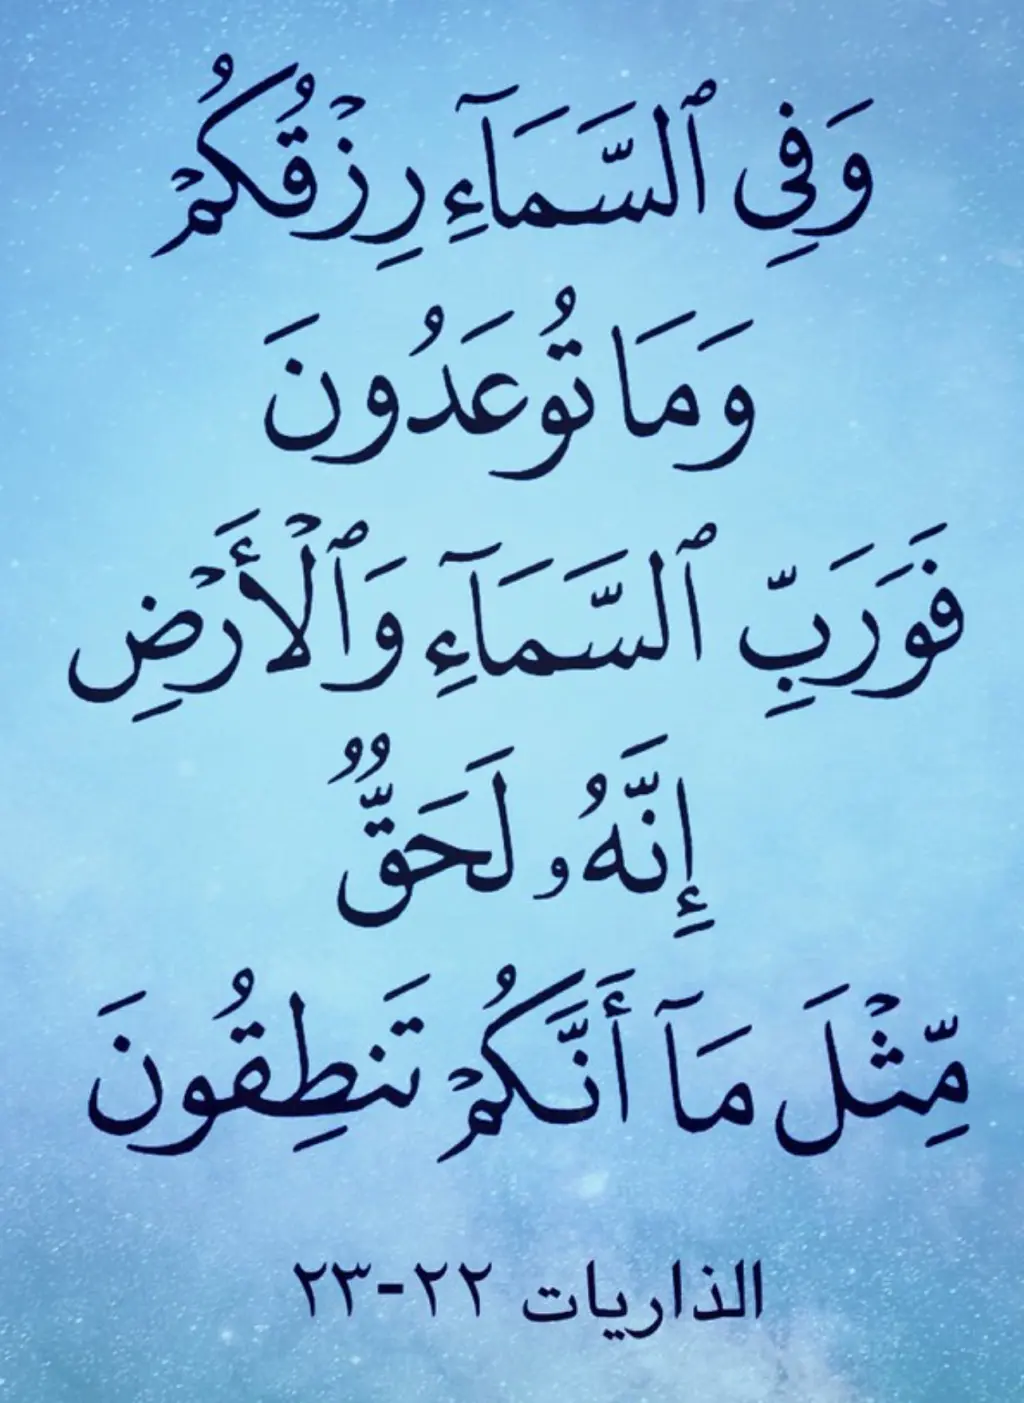 وَفِي ٱلسَّمَآءِ رِزْقُكُمْ
وَمَا تُوعَدُونَ
فَوَرَبِّ ٱلسَّمَآءِ وَٱلْأَرْضِ
إِنَّهُۥ لَحَقٌّ
مِّثْلَ مَآ أَنَّكُمْ تَنطِقُونَ
الذاريات ٢٢-٢٣